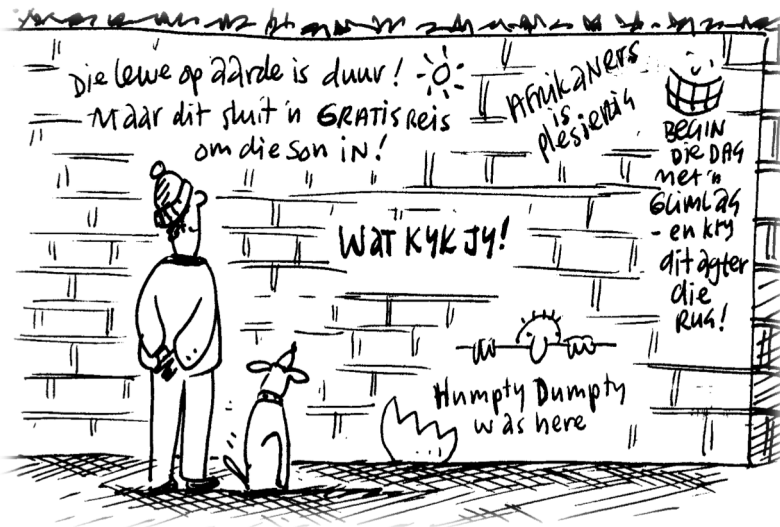 Die lewe op aarde is duur!
Maar dit sluit 'n GRATIS Reis
om die son in!
AFRIKANERS
is
plesierig
BEGIN
DIE DAG
met 'n
GLIMLAG
- en kry
dit agter
die
RUG!
WAT KYK JY!
Humpty Dumpty
was here